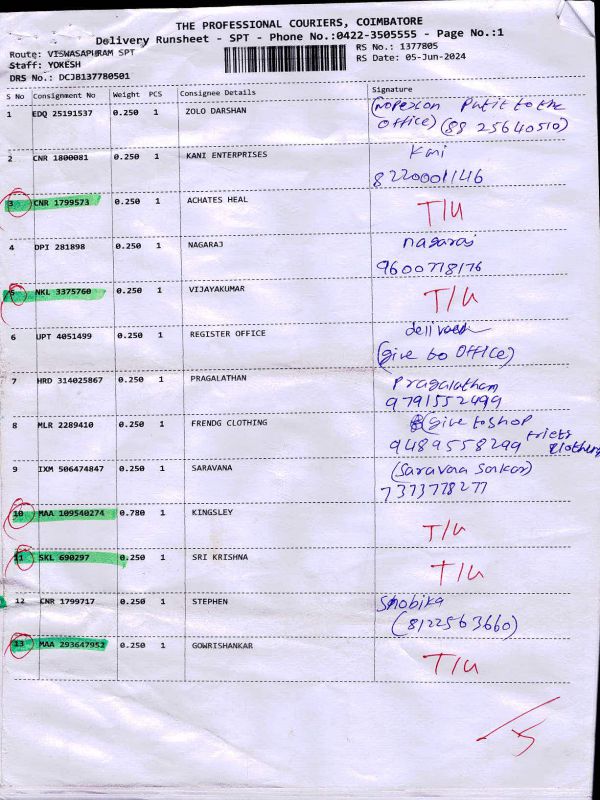 THE PROFESSIONAL COURIERS, COIMBATORE
Delivery Runsheet - SPT - Phone No.:0422-3505555 - Page No.:1
Route: VISWASAPURAM SPT
RS No.: 1377805
Staff: YOKESH
RS Date: 05-Jun-2024
DRS No.: DCJB137780501
S No Consignment No Weight PCS Consignee Details Signature
1 EDQ 25191537 0.250 1 ZOLO DARSHAN (nopexon Put it to the
office) (88 25640510)
2 CNR 1800081 0.250 1 KANI ENTERPRISES Kani
8220001146
3 CNR 1799573 0.250 1 ACHATES HEAL T/U
4 DPI 281898 0.250 1 NAGARAJ nagaraj
9600778176
5 NKL 3375760 0.250 1 VIJAYAKUMAR T/U
6 UPT 4051499 0.250 1 REGISTER OFFICE
(give to Office)
7 HRD 314025867 0.250 1 PRAGALATHAN Pragalatham
9791552499
8 MLR 2289410 0.250 1 FRENDG CLOTHING (give to shop
9489558299
9 IXM 506474847 0.250 1 SARAVANA (Saravaa Sankar)
7373778277
10 MAA 109540274 0.780 1 KINGSLEY T/U
11 SKL 690297 0.250 1 SRI KRISHNA T/U
12 CNR 1799717 0.250 1 STEPHEN Shobika
(8122563660)
13 MAA 293647952 0.250 1 GOWRISHANKAR T/U